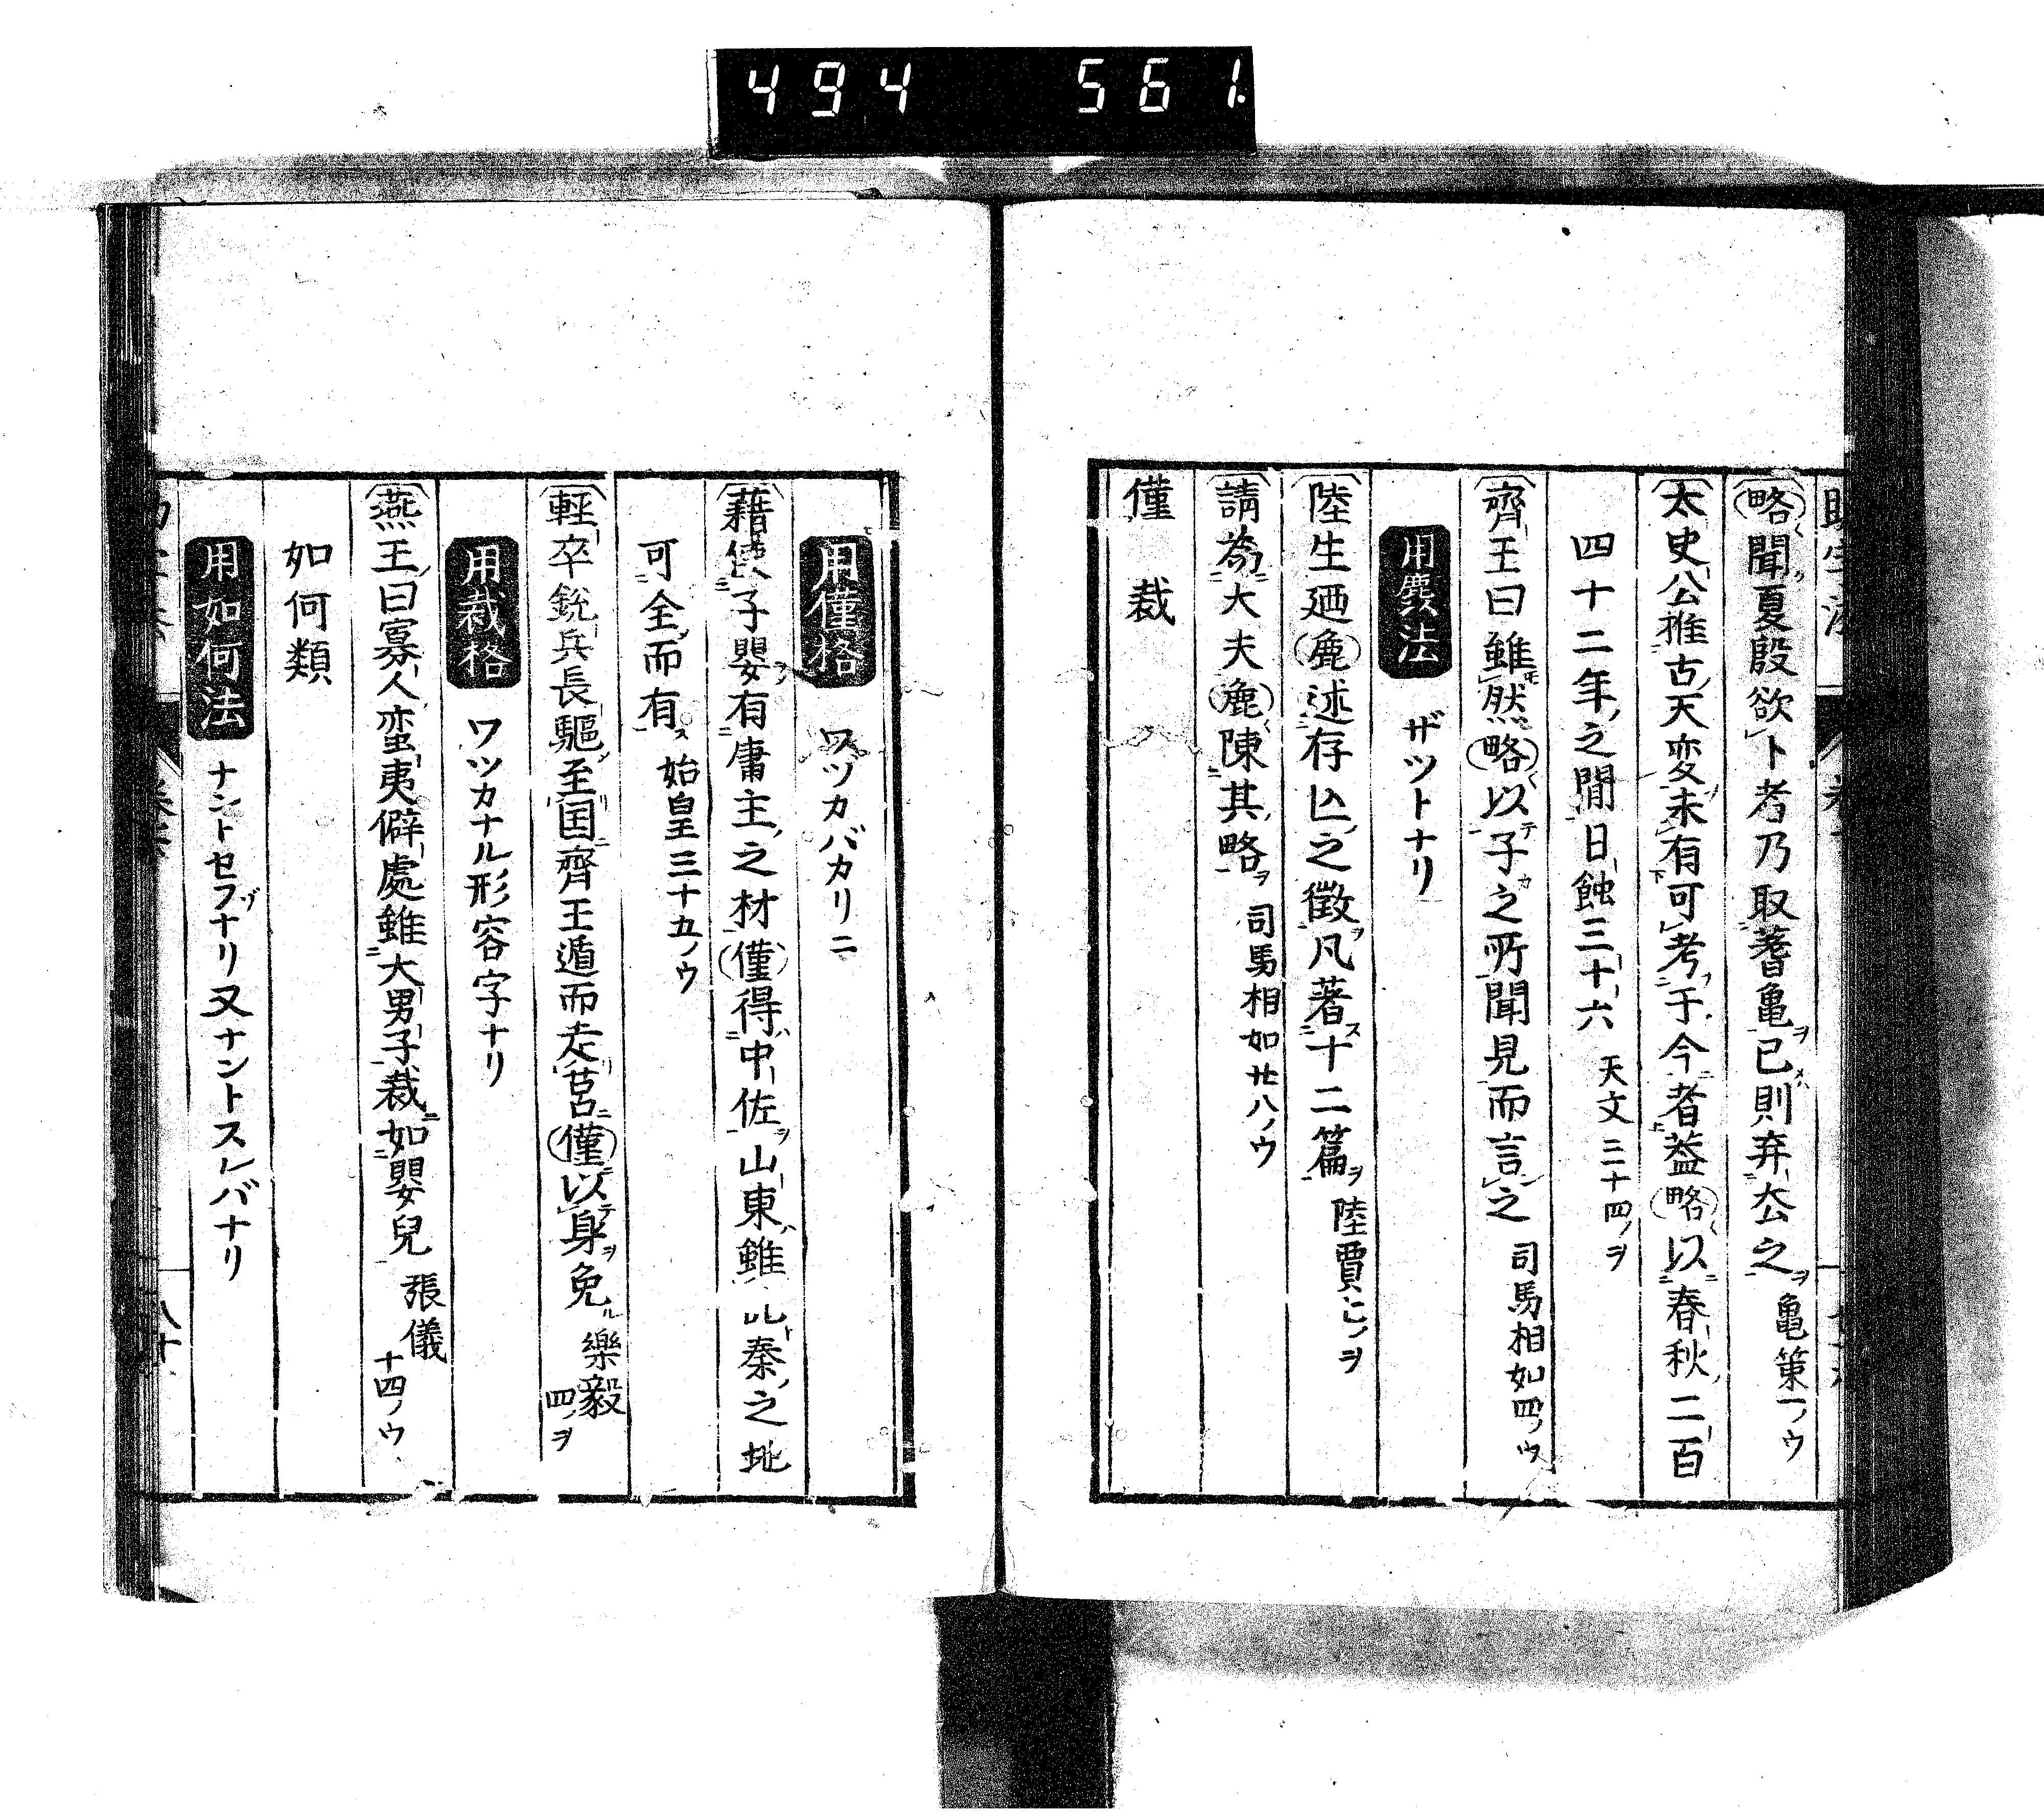 494 561.
略聞夏殷欲卜者乃取蓍亀ヲ已則弃厺之ヲ 亀策一ノウ
太史公推古天変未有可考于今者葢略以春秋二百
四十二年之間日蝕三十六 天文三十四ノヲ
齊王曰雖然略以子之所聞見而言之 司馬相如四ノウ
ザットナリ
陸生廼麁述存亾之徴ヲ凡著十二篇ヲ 陸賈七ノヲ
請為大夫麁陳其略ヲ 司馬相如廿八ノウ
僅 裁
用僅格 ワヅカバカリニ
藉使子嬰有庸主之材僅得中佐ヲ山東雖 秦之地
可全而有 始皇三十五ノウ
輕卒銳兵長驅至国齊王遁而走莒僅以身ヲ免ル 樂毅 四ノヲ
用裁格 ワツカナル形容字ナリ
燕王曰寡人蛮夷僻處雖大男子裁如嬰兒 張儀 十四ノウ
如何類
用如何法 ナントセフゾナリ又ナントスレバナリ